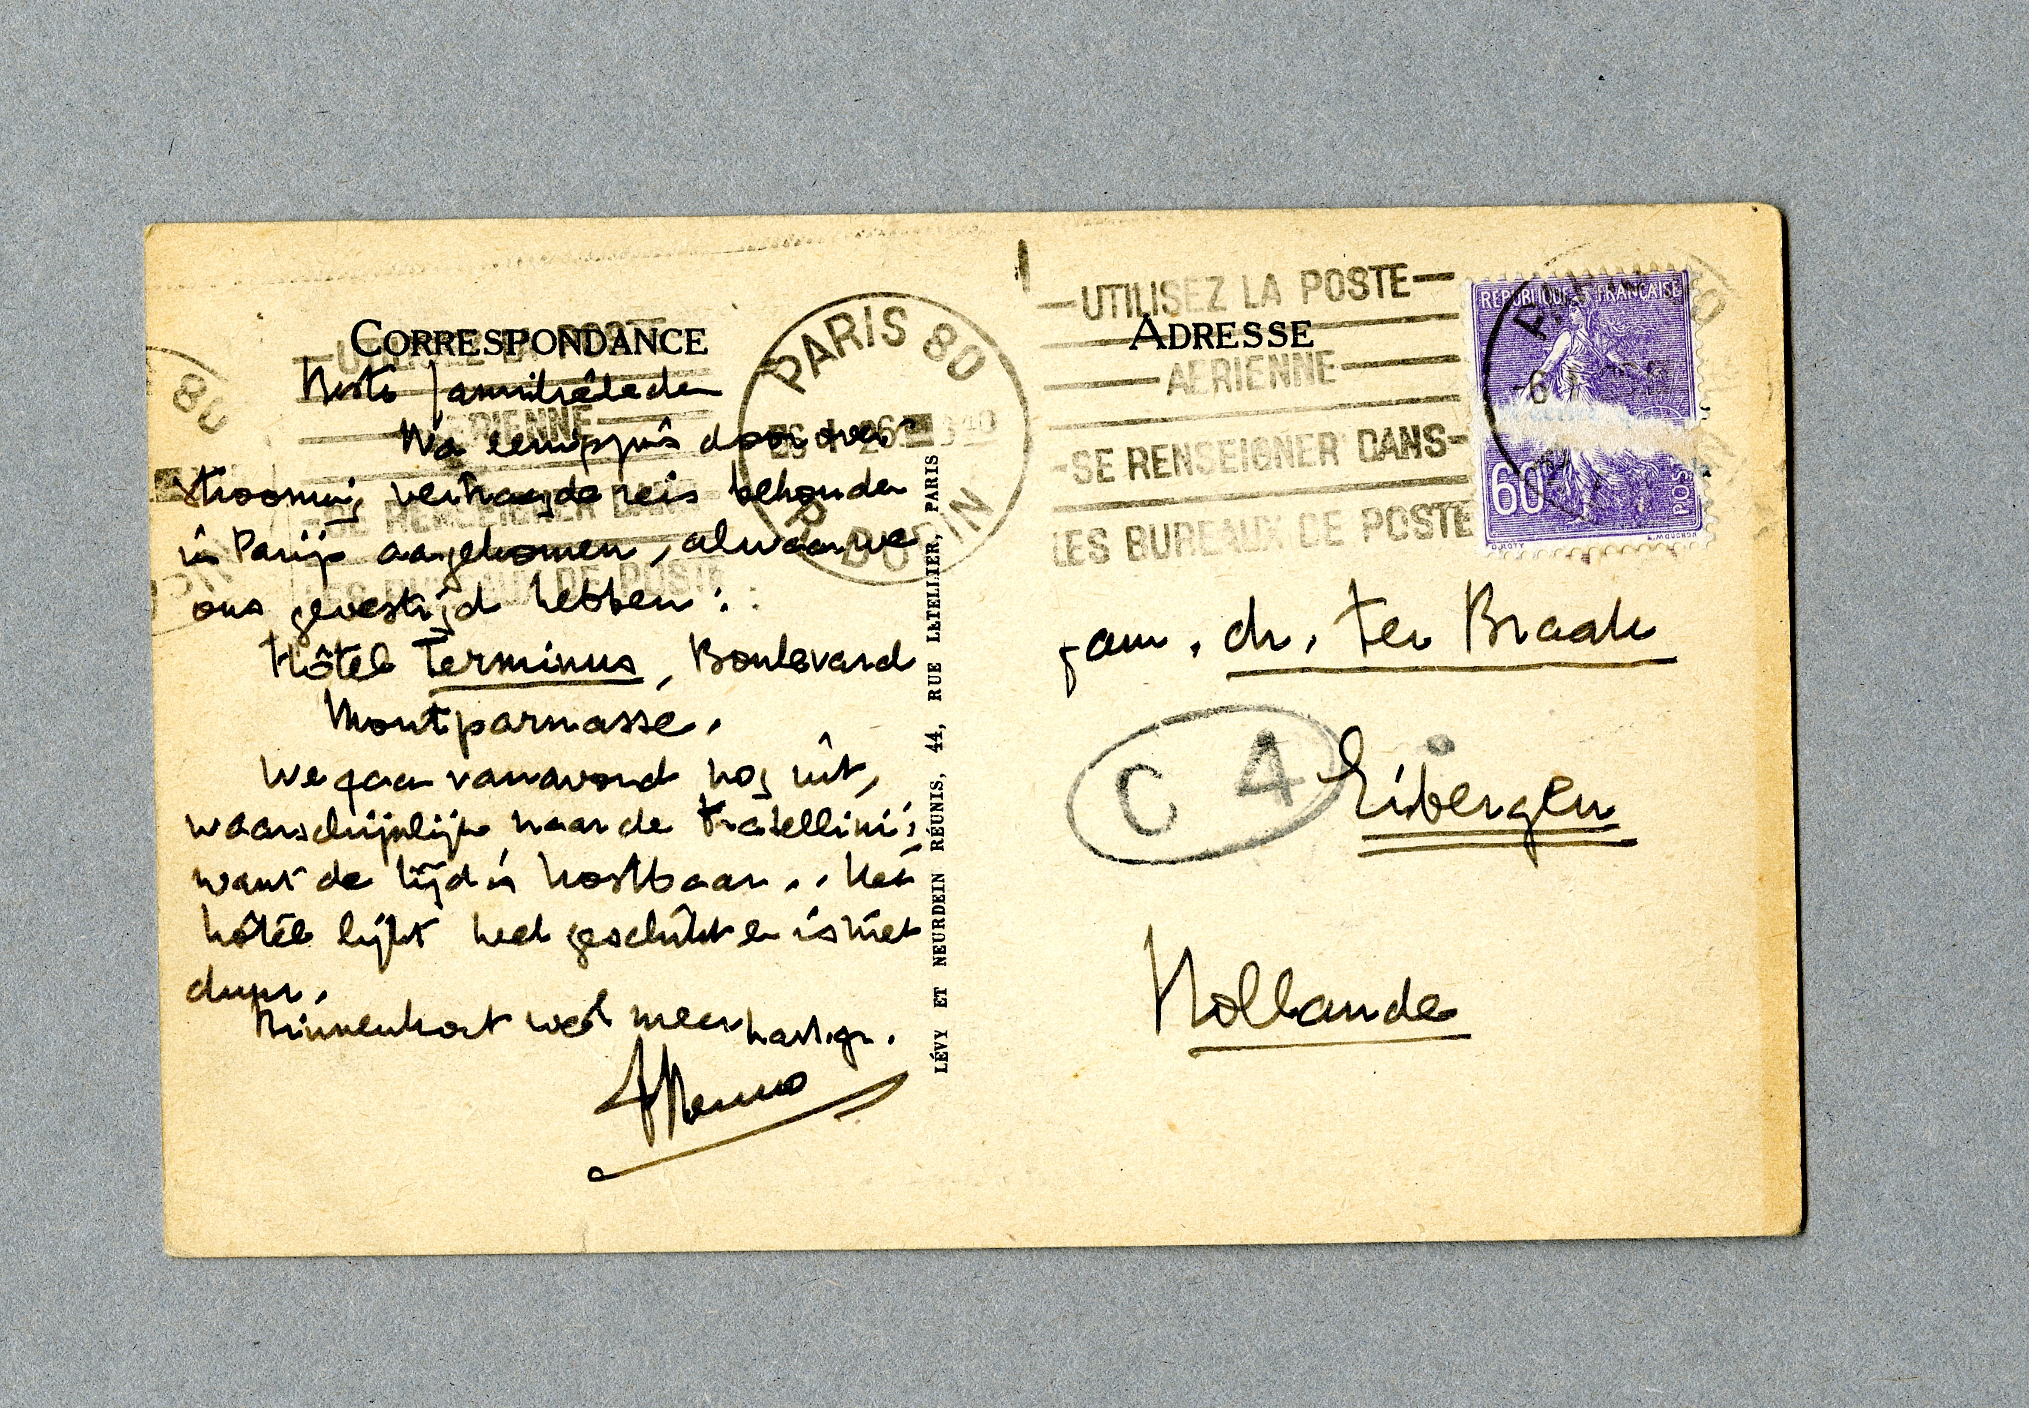 CORRESPONDANCE
Beste familieleden
Na eenigszins door over-
strooming vertraagde reis behouden
in Parijs aangekomen, alwaar we
ons gevestigd hebben:
Hôtel Terminus, Boulevard
Montparnasse.
We gaan vanavond nog uit,
waarschijnlijk naar de Fratellini's,
want de tijd is kostbaar. Het
hôtel lijkt heel geschikt en is niet
duur.
Binnenkort wel meer hart. gr.
Menno
LÉVY ET NEURDEIN RÉUNIS, 44, RUE LETELLIER, PARIS
PARIS 80
R. DUPIN
ADRESSE
UTILISEZ LA POSTE
AERIENNE
SE RENSEIGNER DANS
LES BUREAUX DE POSTE
REPUBLIQUE FRANÇAISE
60
POST
fam. dr. ter Braak
C 4
Eibergen
Hollande